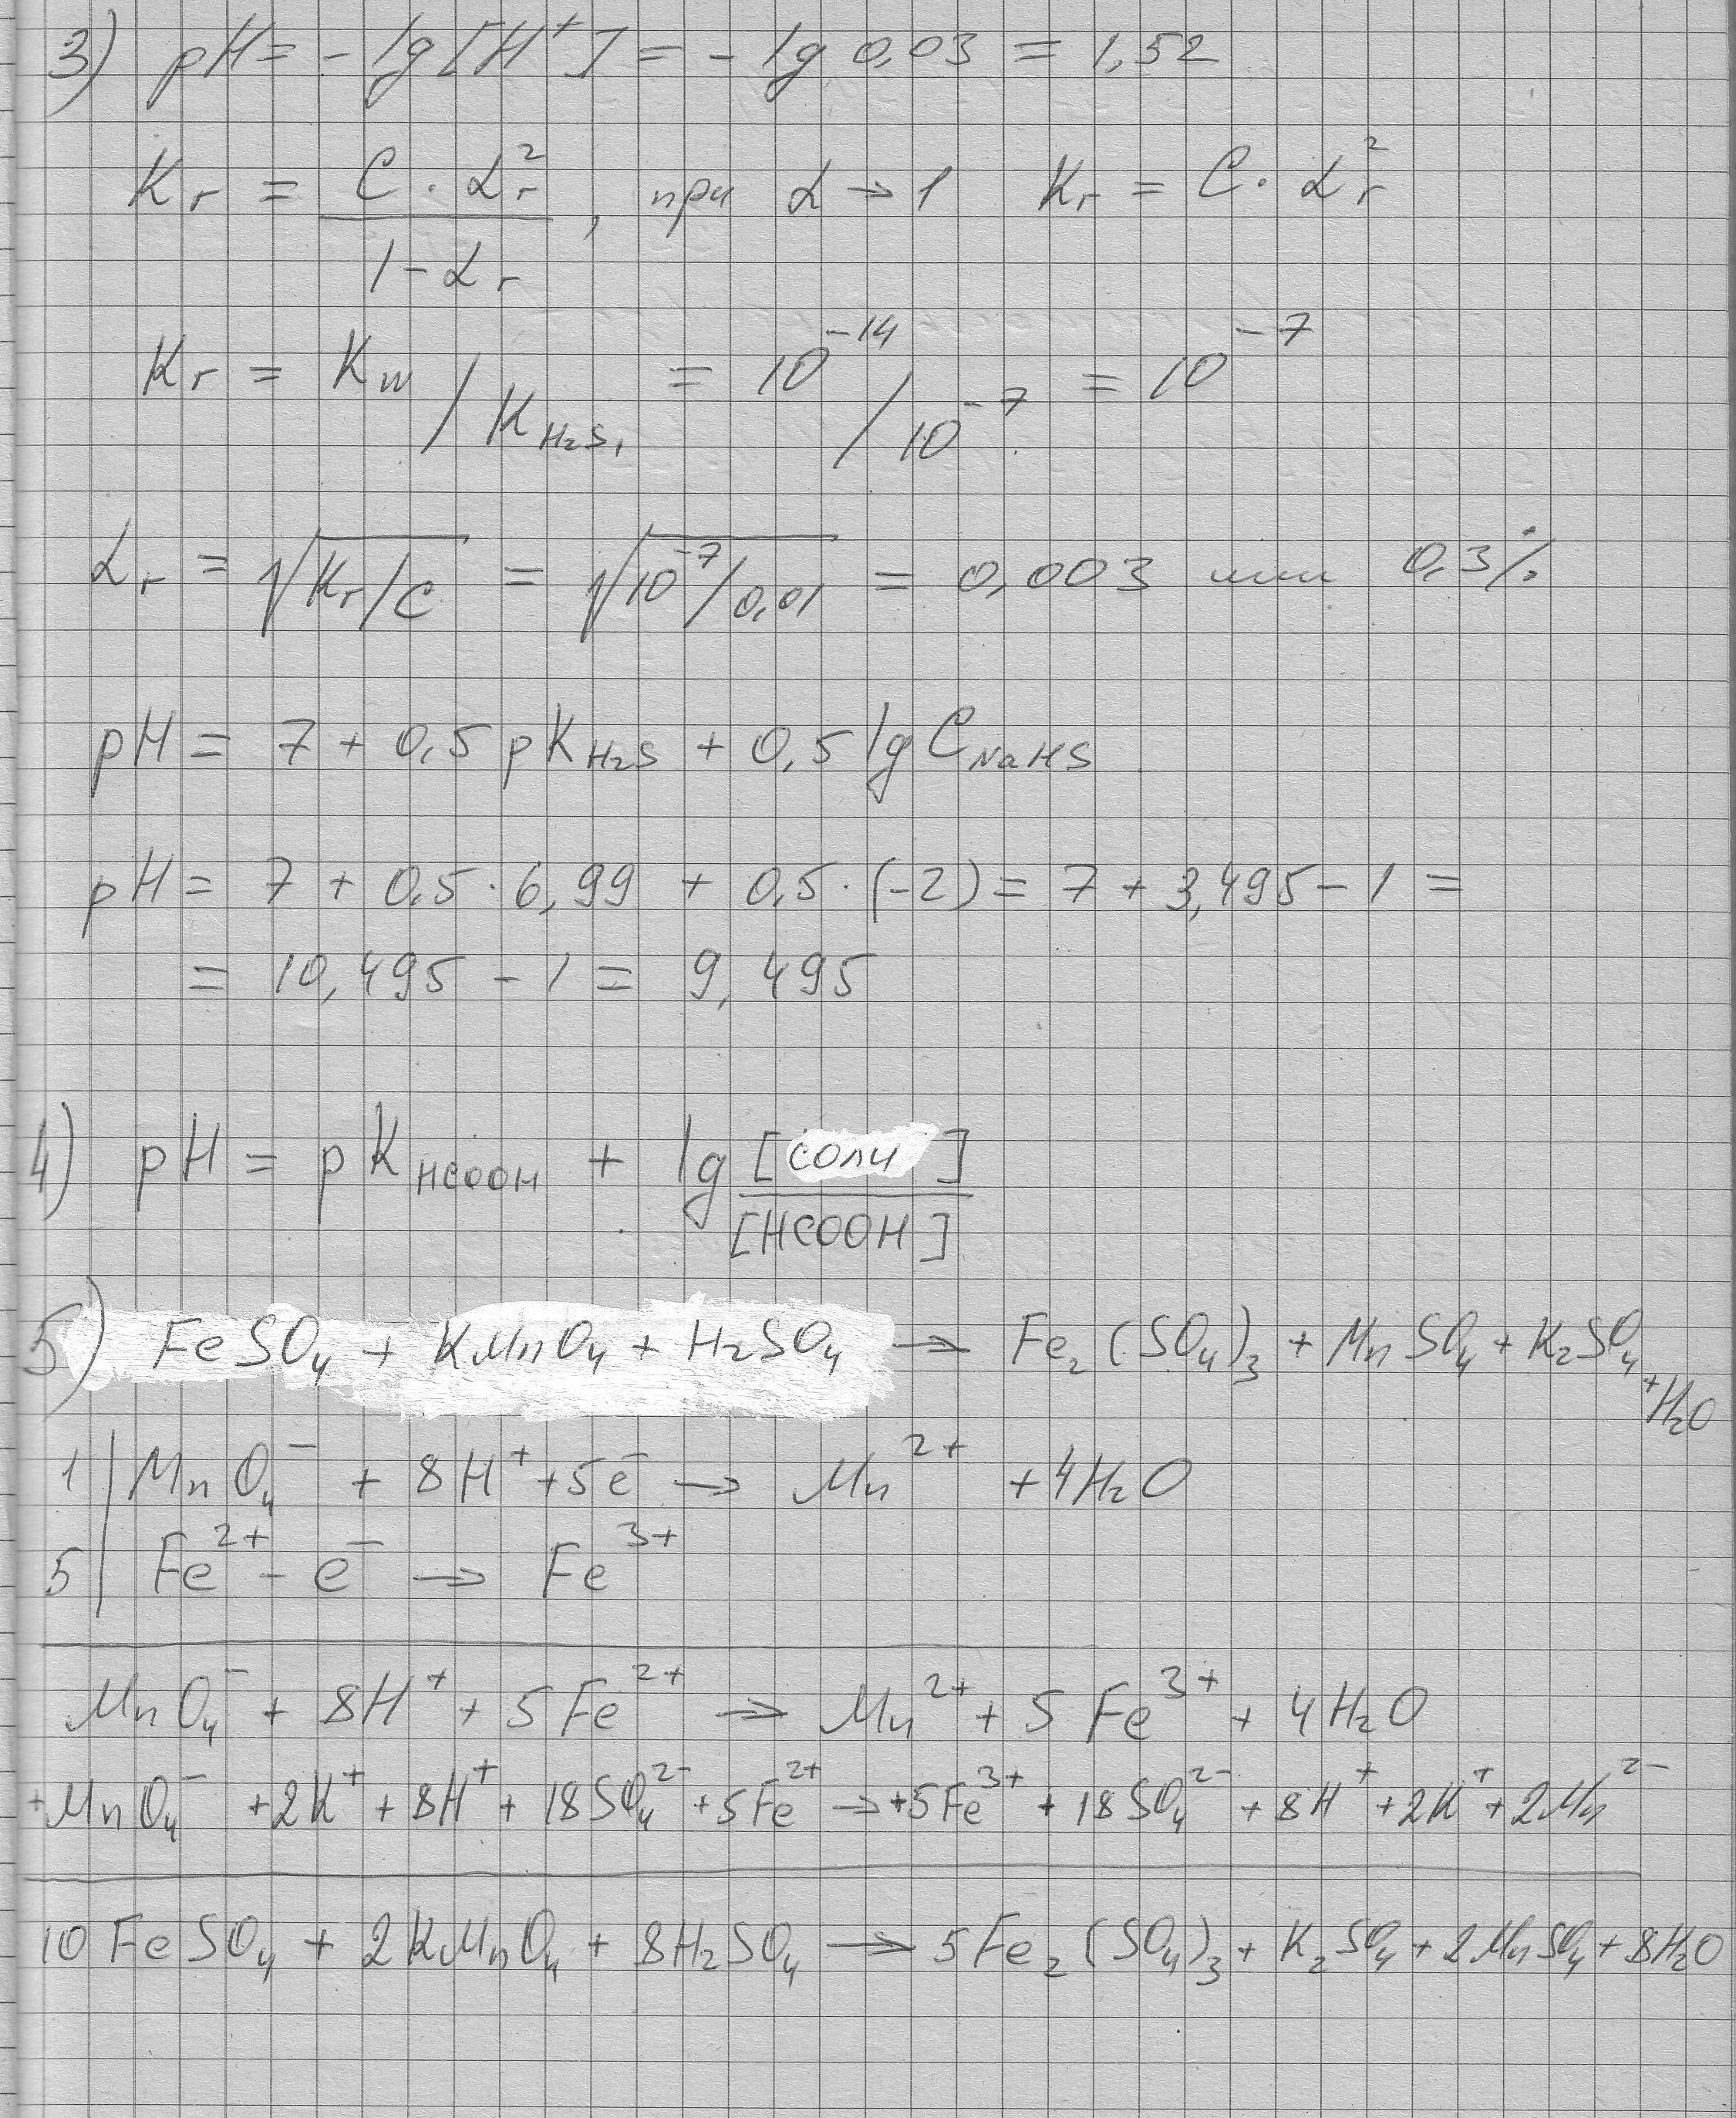 3) pH = - lg [H⁺] = - lg 0,03 = 1,52
Kг = C · αг² / 1-αг , при α → 1 Kг = C · αг²
Kг = Kw / K H₂S₁ = 10⁻¹⁴ / 10⁻⁷ = 10⁻⁷
αг = √Kг/C = √10⁻⁷/0,01 = 0,003 или 0,3%
pH = 7 + 0,5 pK H₂S + 0,5 lg C NaHS
pH = 7 + 0,5 · 6,99 + 0,5 · (-2) = 7 + 3,495 - 1 =
= 10,495 - 1 = 9,495
4) pH = pK HCOOH + lg [соли] / [HCOOH]
5) FeSO₄ + KMnO₄ + H₂SO₄ → Fe₂(SO₄)₃ + MnSO₄ + K₂SO₄ + H₂O
1 | MnO₄⁻ + 8H⁺ + 5e⁻ → Mn²⁺ + 4H₂O
5 | Fe²⁺ - e⁻ → Fe³⁺
MnO₄⁻ + 8H⁺ + 5Fe²⁺ → Mn²⁺ + 5Fe³⁺ + 4H₂O
+MnO₄⁻ + 2K⁺ + 8H⁺ + 18SO₄²⁻ + 5Fe²⁺ → +5Fe³⁺ + 18SO₄²⁻ + 8H⁺ + 2K⁺ + 2Mn²⁻
10FeSO₄ + 2KMnO₄ + 8H₂SO₄ → 5Fe₂(SO₄)₃ + K₂SO₄ + 2MnSO₄ + 8H₂O